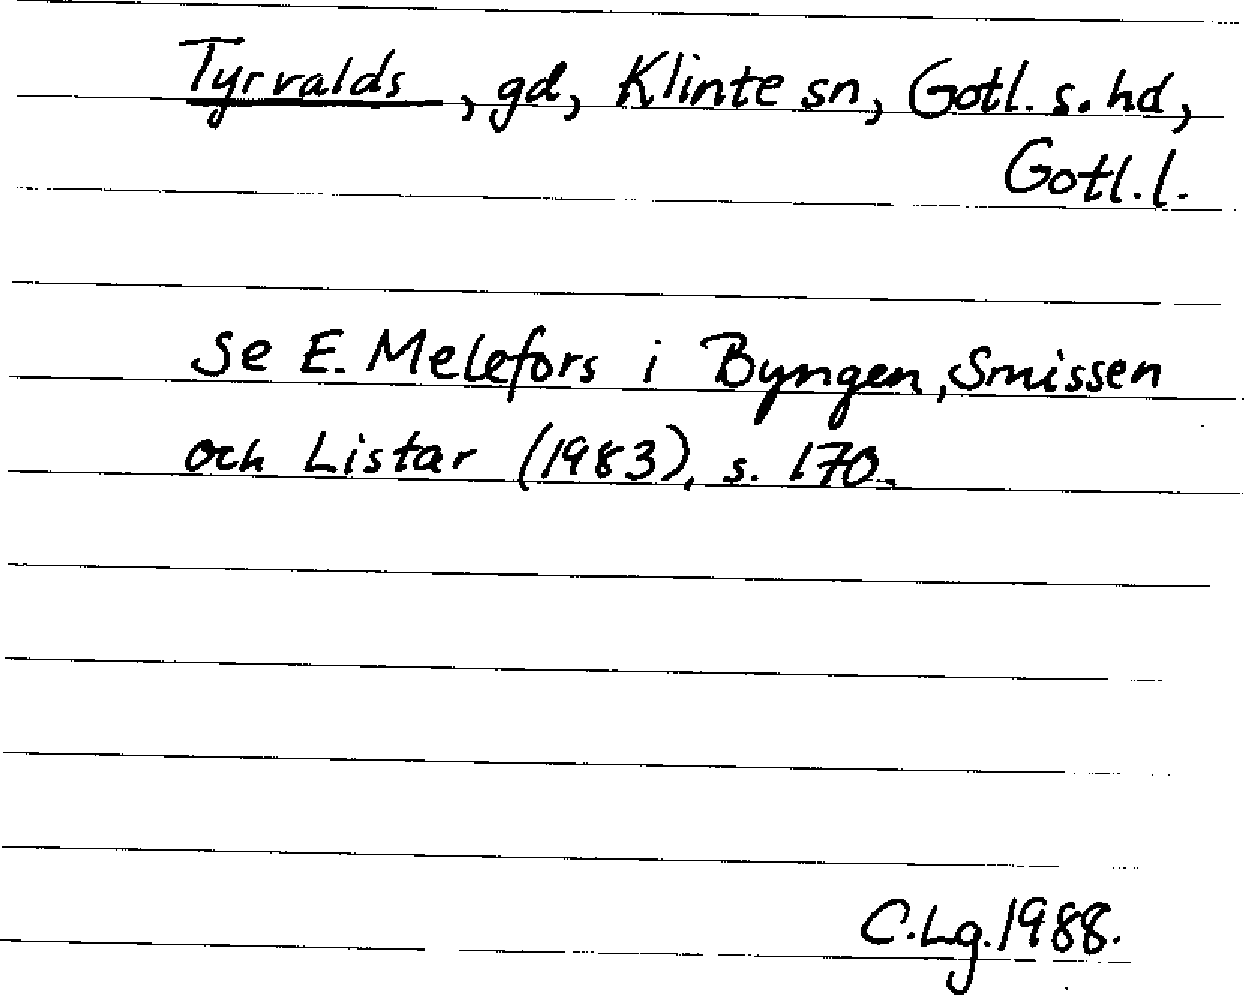 Tyrvalds, gd, Klinte sn, Gotl. s. hd,
Gotl. l.
Se E. Melefors i Byngen, Smissen
och Listar (1983), s. 170.
C.Lg. 1988.